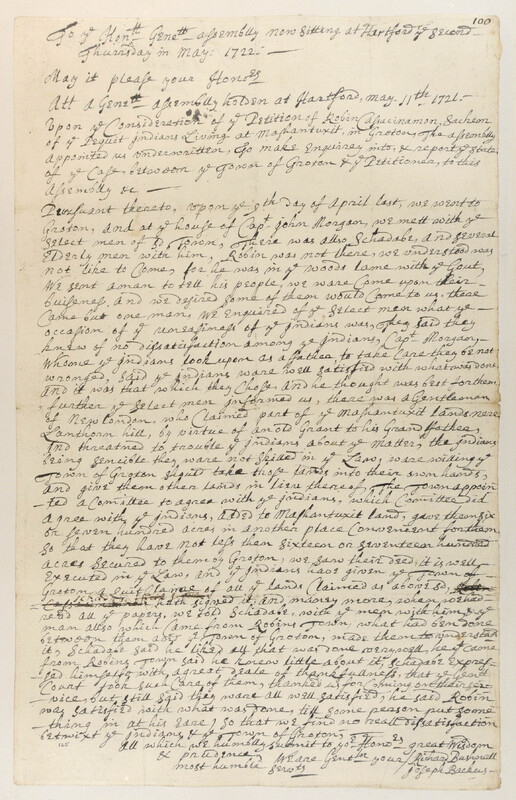 100
To ye Honble Genell assembly now Sitting at Hartford ye Second
Thursday in May: 1722:—
May it please your Honors
Att a Genell assembly holden at Hartford, may. 11th 1721.—
Upon ye Consideration of ye Petition of Robin Cassinamon, Sachem
of ye Pequit Indians Living at Mashantuxit, in Groton, The assembly
appointed us underwritten, To make Enquirey into, & report ye State
of ye Case, between ye Town of Groton & ye Petitioner, to this
assembly &c —
Pursuant thereto, Upon ye 5th Day of April last, we went to
Groton, and at ye house of Capt John Morgan, we mett with ye
Select men of sd Town, There was allso Schadabe, and several
Elderly men with him, Robin was not there, we understood was
not like to Come, for he was in ye woods lame with ye Gout,
We sent a man to tell his people, we ware Come upon their
buiseness, And we desired some of them would Come to us, there
Came but one man, We Enquired of ye Select men what ye
occasion of ye uneasiness of ye Indians was, They said they
knew of no dissatisfaction among ye Indians, Capt Morgan,
Whome ye Indians look upon as a father to take Care they be not
wronged, said ye Indians ware well satisfied with what was done
And it was that which they Chose, and he thought was best for them,
further ye Select men informed us, there was a Gentleman
of New london, who Claimed part of ye Mashantuxit lands nere
Lanthorn hill, by virtue of an old Grant to his Grandfather,
And threatned to trouble ye Indians about ye Matter, the Indians
being Sencible they ware not skilled in ye Law, ware willing ye
Town of Groton should take those lands into their own hands,
and give them other lands in lieu thereof, The Town appoin
-ted a Comittee to agree with ye Indians, which Comittee did
agree with ye Indians, added to Mashantuxit land, gave them six
or seven hundred acres in another place Convenient for them
So that they have not less then Sixteen or Seventeen hundred
acres Secured to them by Groton, we saw their deed, it is well
Executed in ye Law, and ye Indians have given ye Town of
Groton a quit Claime of all ye lands Claimed as abovesd,
hath signed it, and many more, when we had
read all ye papers, we told Schadabe, with ye men with him, & ye
man allso which Came from Robins Town, what had been done
betwoen them and ye Town of Groton, made them to understand
it, Schadabe said he liked all that was done very well, he yt came
from Robins Town said he knew little about it, Schadabe Expres-
sed himself with a great deale of thankfulness, that ye Genll
Court took such Care of them, thanked us for Coming on their ser-
vice, but still said they ware all well satisfied, he said Robin
was satisfied with what was done, till some person put some
thing in at his Eare) So that we find no reall dissatisfaction
betwixt ye Indians & ye Town of Groton
all which we humbly submit to yor Honors great Wisdom
& prudence, We are Gentlm your
most humble Servts
Richard Bushnell
Joseph Backus—